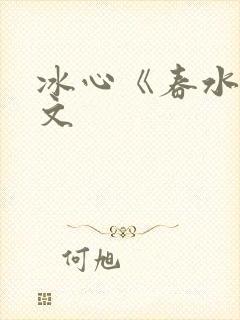 冰心《春水
文
何旭